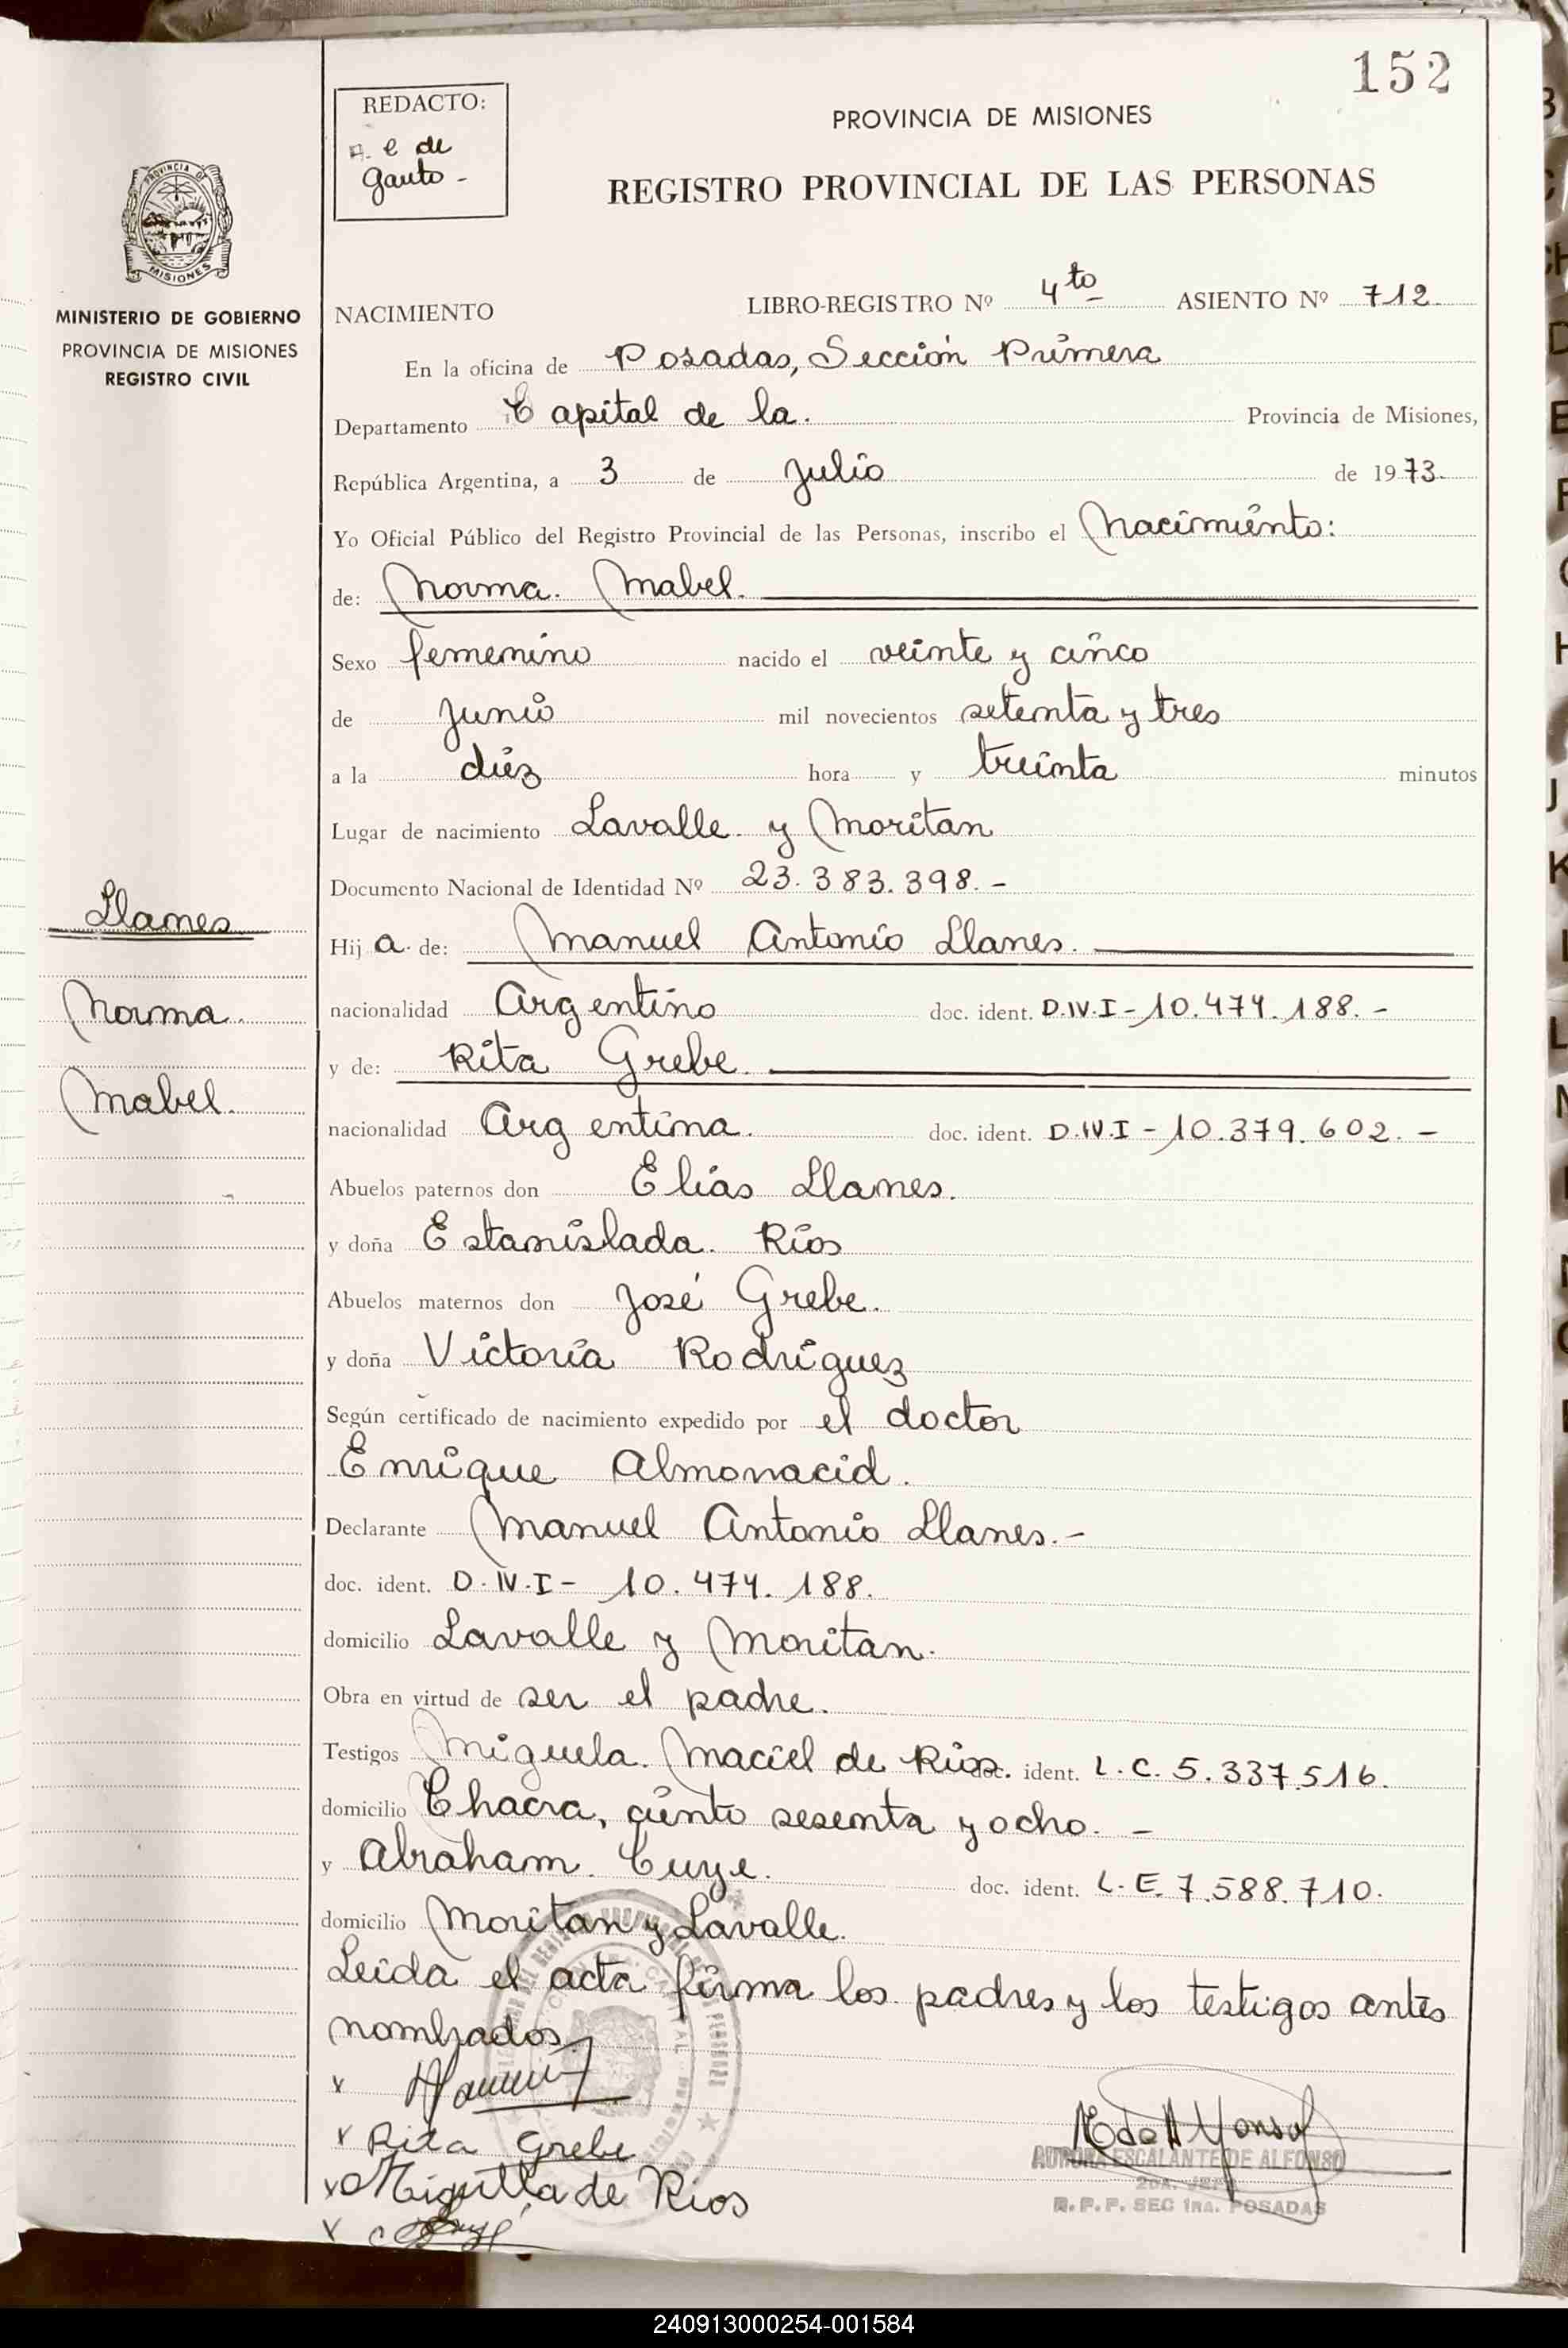 152
REDACTO:
e de
Gauto -
PROVINCIA DE MISIONES
REGISTRO PROVINCIAL DE LAS PERSONAS
PROVINCIA DE
MISIONES
MINISTERIO DE GOBIERNO
PROVINCIA DE MISIONES
REGISTRO CIVIL
NACIMIENTO LIBRO-REGISTRO Nº 4to ASIENTO Nº 712
En la oficina de Posadas, Sección Primera
Departamento Capital de la. Provincia de Misiones,
República Argentina, a 3 de Julio de 1973.
Yo Oficial Público del Registro Provincial de las Personas, inscribo el Nacimiento:
de: Norma. Mabel.
Sexo femenino nacido el veinte y cinco
de Junio mil novecientos setenta y tres
a la diez hora y treinta minutos
Lugar de nacimiento Lavalle y Moritan
Documento Nacional de Identidad Nº 23.383.398.-
Llanes
Norma.
Mabel.
Hij a. de: Manuel Antonio Llanes.
nacionalidad Argentino doc. ident. D.N.I-10.474.188.-
y de: Rita Grebe.
nacionalidad Argentina. doc. ident. D.N.I-10.379.602.-
Abuelos paternos don Elias Llanes.
y doña Estanislada. Rios
Abuelos maternos don José Grebe.
y doña Victoria Rodriguez
Según certificado de nacimiento expedido por el doctor
Enrique Almonacid.
Declarante Manuel Antonio Llanes.-
doc. ident. D.N.I- 10.474.188.
domicilio Lavalle y Moritan.
Obra en virtud de ser el padre.
Testigos Miguela. Maciel de Rios. doc. ident. L.C. 5.337.516.
domicilio Chacra, ciento sesenta y ocho. -
y Abraham. Cuye. doc. ident. L.E. 7.588.710.
domicilio Moritan y Lavalle.
Leida el acta firma los padres y los testigos antes
nombrados.
x
x Rita Grebe
x Miguela de Rios
x
AURORA ESCALANTE DE ALFONSO
2DA. JEFE
R.P.P. SEC 1RA. POSADAS
240913000254-001584